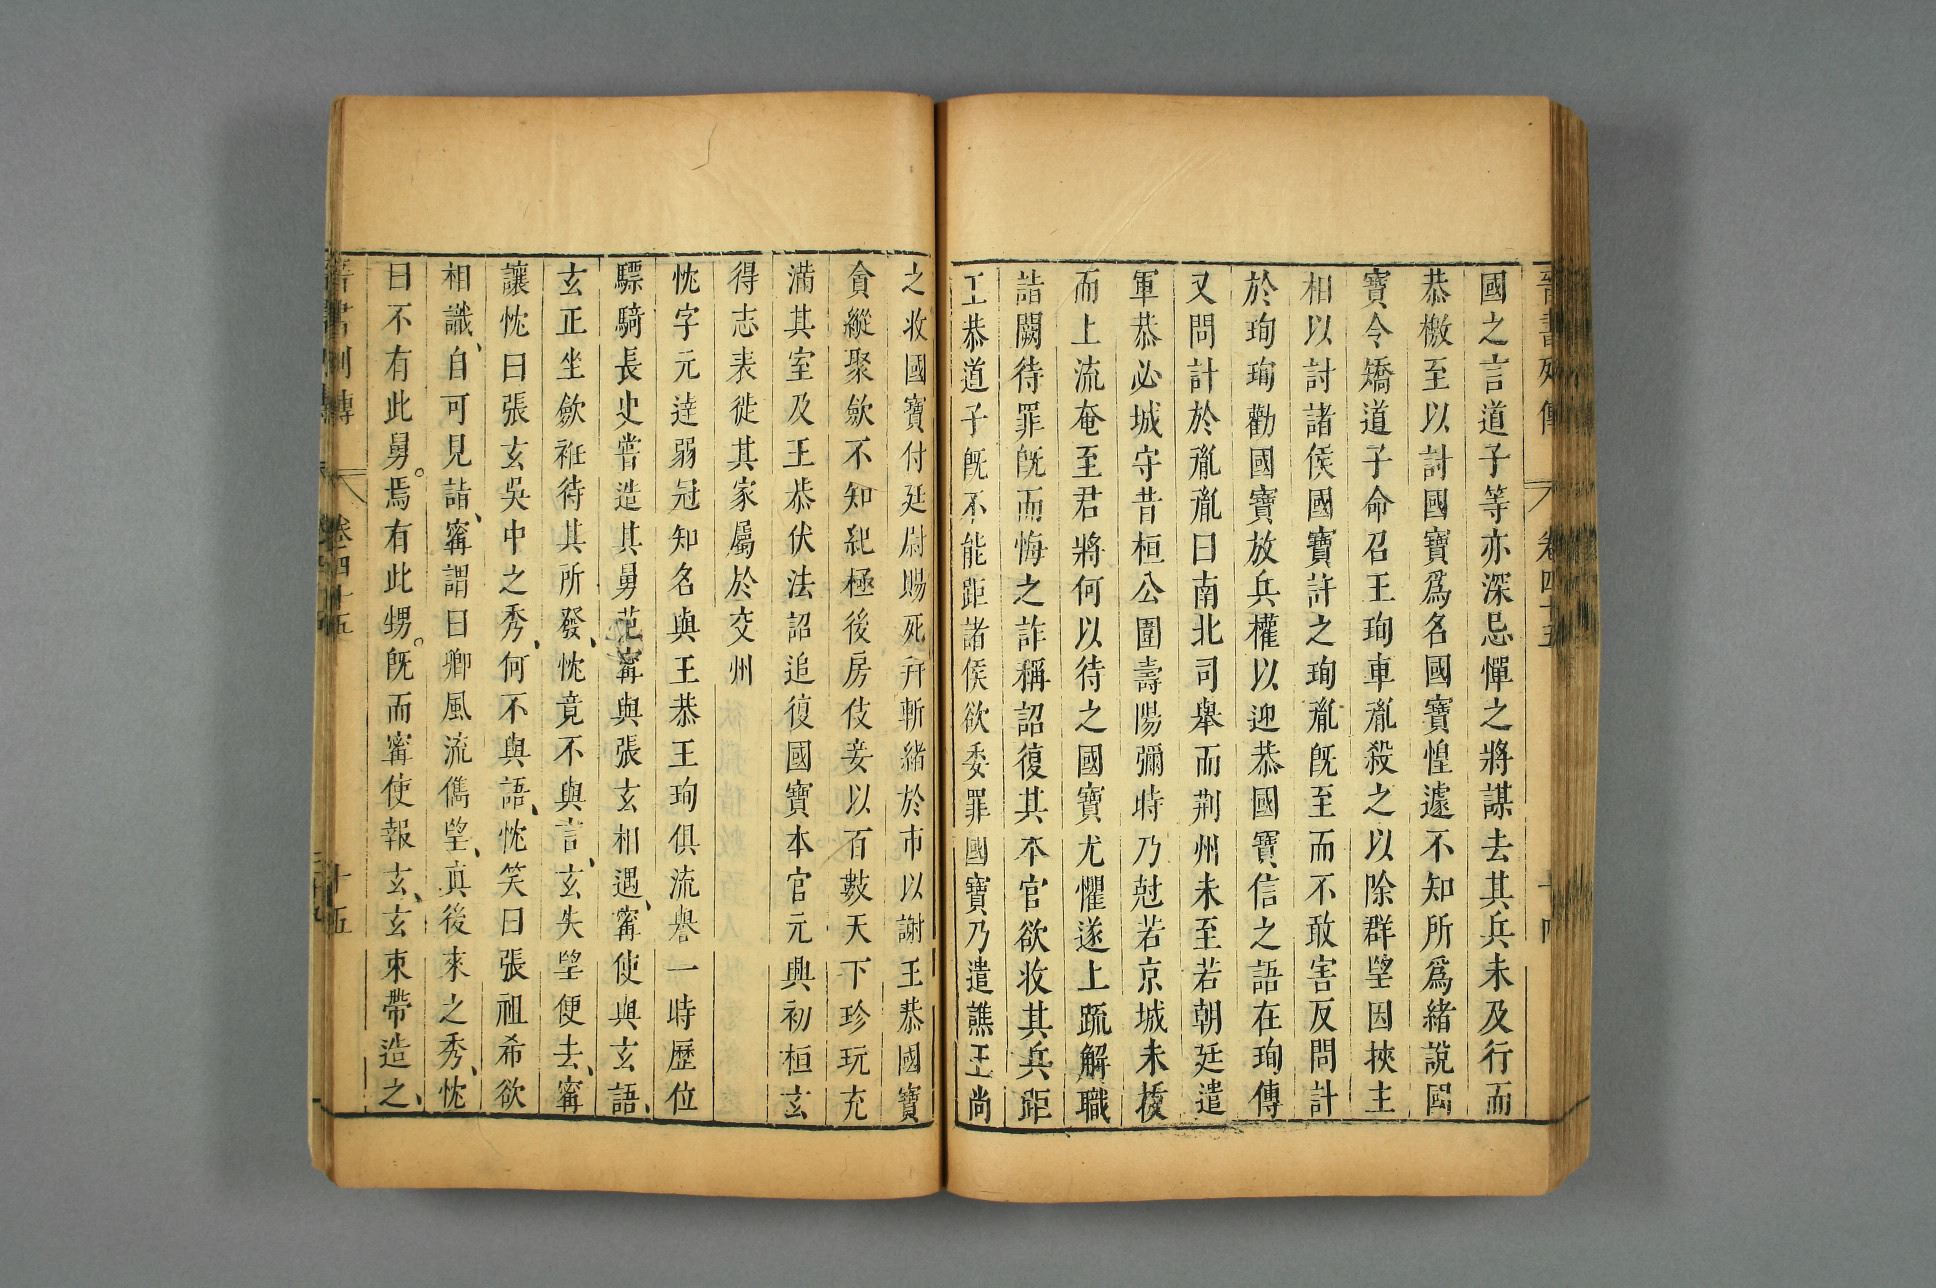 晉書列傳 卷四十五 十四
國之言道子等亦深忌憚之將謀去其兵未及行而
恭檄至以討國寶爲名國寶惶遽不知所爲緒說國
寶令矯道子命召王珣車胤殺之以除群望因挾主
相以討諸侯國寶許之珣胤旣至而不敢害反問計
於珣珣勸國寶放兵權以迎恭國寶信之語在珣傳
又問計於胤胤曰南北司舉而荆州未至若朝廷遣
軍恭必城守昔桓公圍壽陽彌時乃尅若京城未拔
而上流奄至君將何以待之國寶尤懼遂上疏解職
詣闕待罪旣而悔之詐稱詔復其本官欲收其兵距
王恭道子旣不能距諸侯欲委罪國寶乃遣譙王尚
之收國寶付廷尉賜死幷斬緒於市以謝王恭國寶
貪縱聚斂不知紀極後房伎妾以百數天下珍玩充
滿其室及王恭伏法詔追復國寶本官元興初桓玄
得志表徙其家屬於交州
忱字元達弱冠知名與王恭王珣俱流譽一時歷位
驃騎長史嘗造其舅范甯與張玄相遇、甯使與玄語、
玄正坐斂袵待其所發、忱竟不與言、玄失望便去、甯
讓忱曰張玄吳中之秀、何不與語、忱笑曰張祖希欲
相識、自可見詣、甯謂曰卿風流儁望、真後來之秀、忱
曰不有此舅。焉有此甥。旣而甯使報玄、玄束帶造之、
晉書列傳 卷四十五 十五